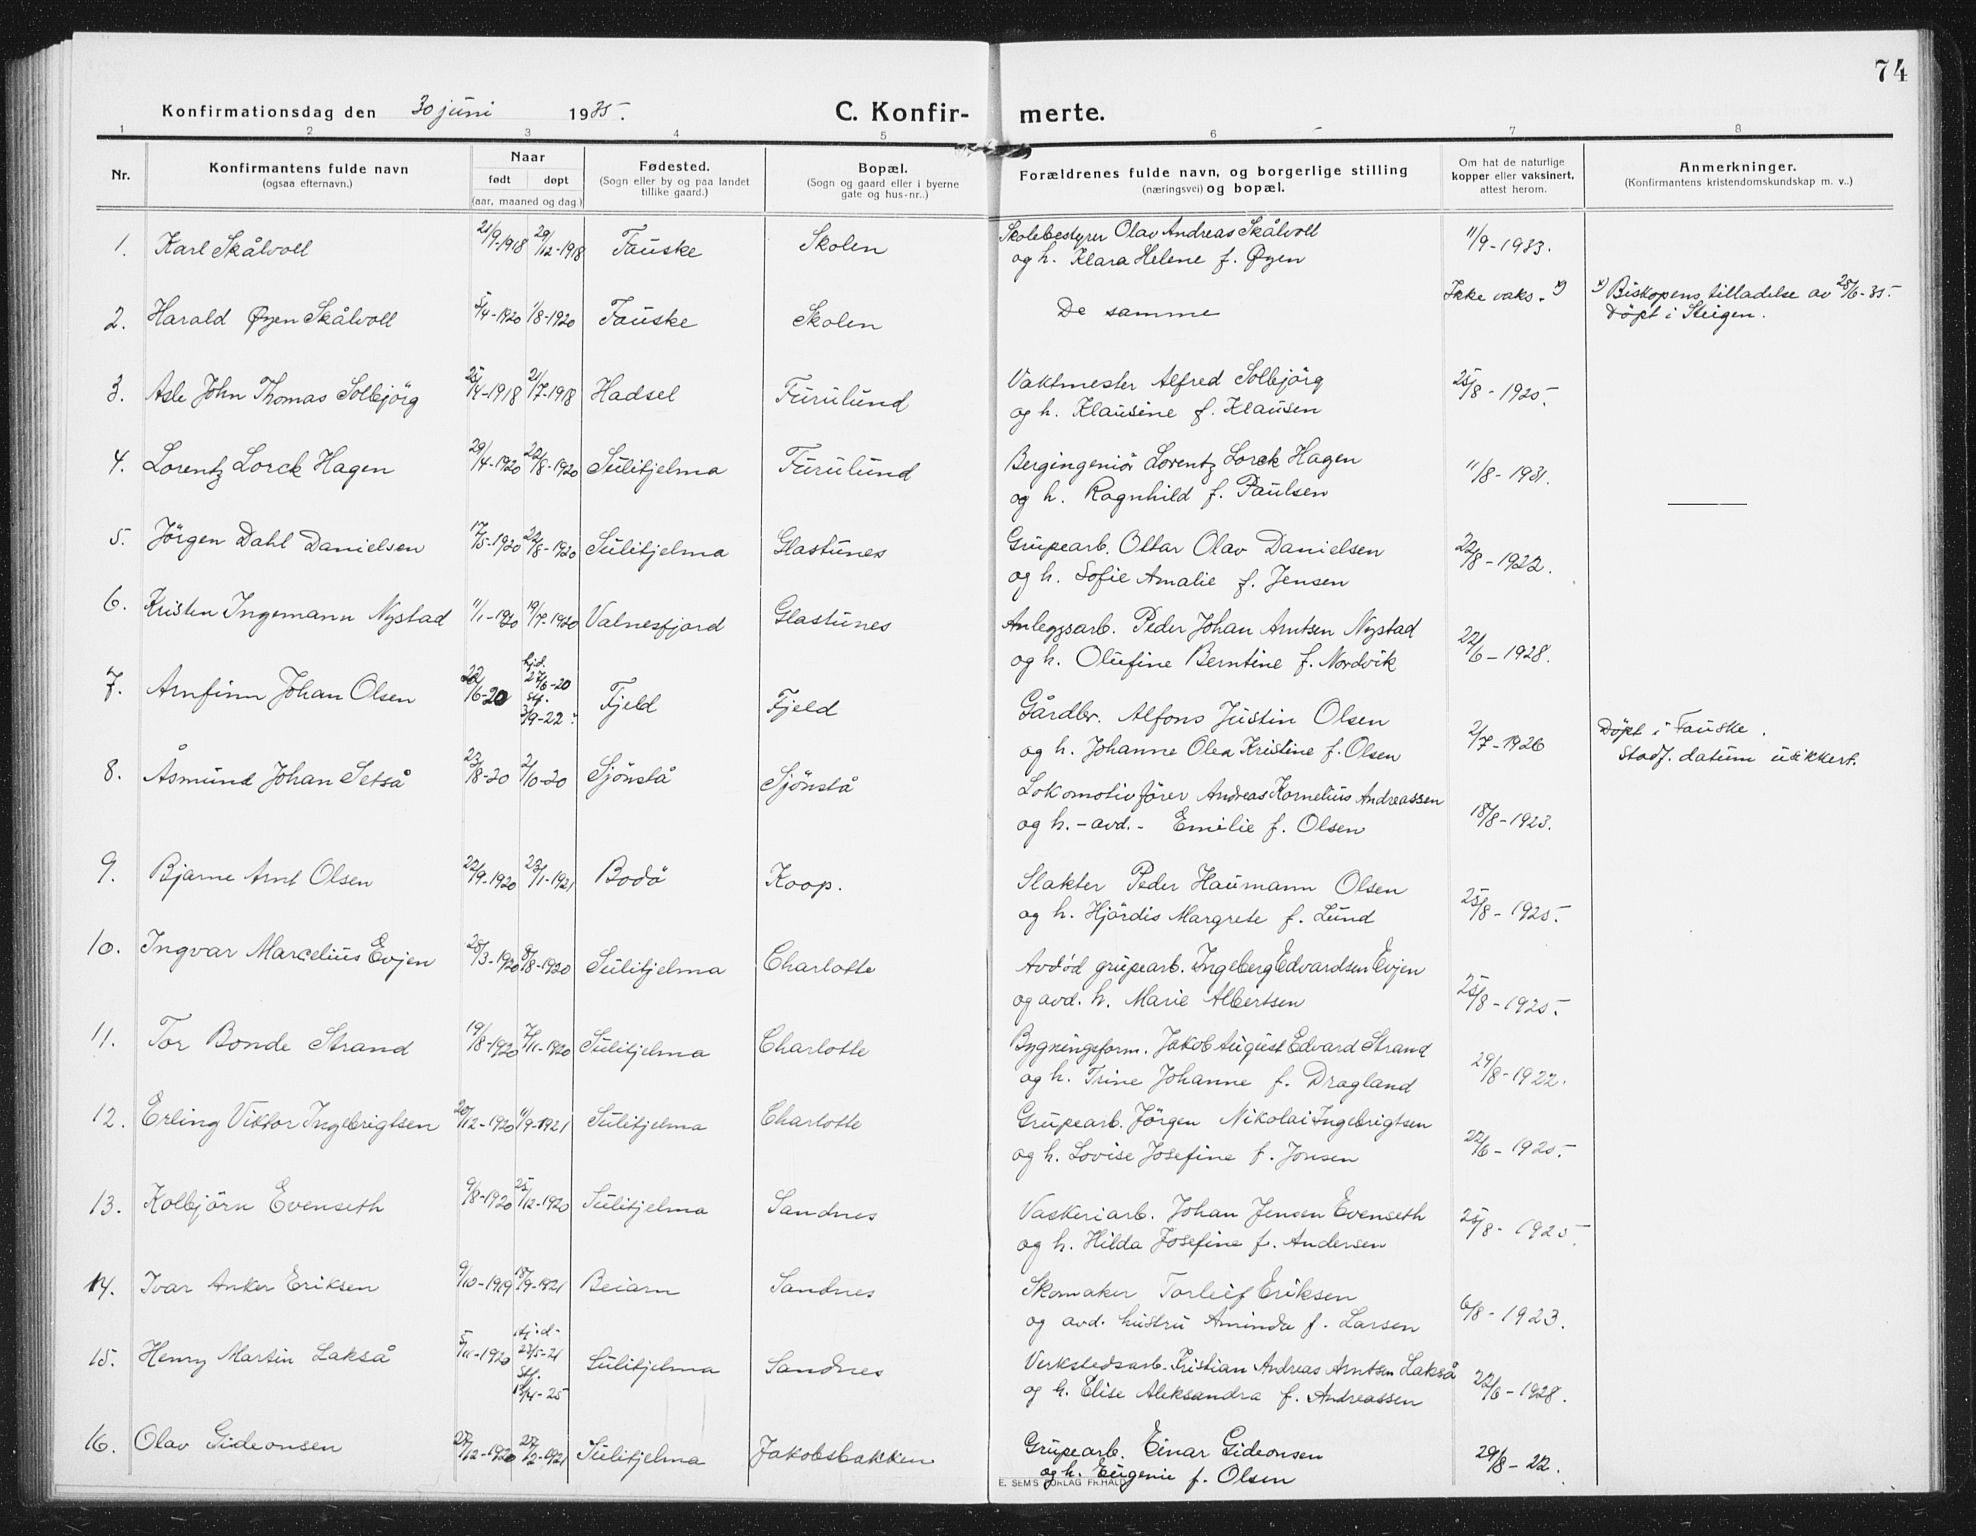 74
Konfirmationsdag den 30 juni 1935.
C. Konfir- merte.
1 2 3 4 5 6 7 8
Nr.
Konfirmantens fulde navn
(ogsaa efternavn.)
Naar
født døpt
(aar, maaned og dag)
Fødested.
(Sogn eller by og paa landet
tillike gaard.)
Bopæl.
(Sogn og gaard eller i byerne
gate og hus-nr..)
Forældrenes fulde navn, og borgerlige stilling
(næringsvei) og bopæl.
Om hat de naturlige
kopper eller vaksinert,
attest herom.
Anmerkninger.
(Konfirmantens kristendomskundskap m. v..)
1. Karl Skålvoll 21/9-1918 29/12-1918 Fauske Skolen Skolebestyrer Olav Andreas Skålvoll 11/9-1933.
og h. Klara Helene f. Øyen
2. Harald Øyen Skålvoll 5/4-1920 1/8-1920 Fauske Skolen De samme Ikke vaks. x) x) Biskopens tilladelse av 28/6-35.
Døpt i Steigen.
3. Asle John Thomas Solbjörg 25/4-1918 21/7-1918 Hadsel Furulund Vaktmester Alfred Solbjörg 25/8-1925.
og h. Klausine f. Klausen
4. Lorentz Lorck Hagen 29/4-1920 22/8-1920 Sulitjelma Furulund Bergingeniör Lorentz Lorck Hagen 11/8-1931.
og h. Ragnhild f. Paulsen
5. Jörgen Dahl Danielsen 17/5-1920 22/8-1920 Sulitjelma Glastunes Grupearb. Ottar Olav Danielsen 22/8-1922.
og h. Sofie Amalie f. Jensen
6. Kristen Ingemann Nystad 11/1-1920 19/7-1920 Valnesfjord Glastunes Anleggsarb. Peder Johan Arntsen Nystad 22/6-1928.
og h. Olufine Berntine f. Nordvik
7. Arnfinn Johan Olsen 22/6-20 hjd. 27/6-20 stf. 3/9-22. Fjeld Fjeld Gårdbr. Alfons Justin Olsen 2/7-1926 Döpt i Fauske.
og h. Johanne Olea Kristine f. Olsen Stadf. datum usikkert.
8. Åsmund Johan Setså 23/8-20 2/10-20 Sjönstå Sjönstå Lokomotivfører Andreas Kornelius Andreassen 18/8-1923.
og h. -avd.- Emilie f. Olsen
9. Bjarne Arnt Olsen 22/9-1920 23/1-1921 Bodö Koop. Slakter Peder Haumann Olsen 25/8-1925.
og h. Hjördis Margrete f. Lund
10. Ingvar Marcelius Evjen 28/3-1920 8/8-1920 Sulitjelma Charlotte Avdød grupearb. Ingeberg Edvardsen Evjen 25/8-1925.
og avd. h. Marie Albertsen
11. Tor Bonde Strand 19/8-1920 7/11-1920 Sulitjelma Charlotte Bygningsform. Jakob August Edvard Strand 29/8-1922.
og h. Trine Johanne f. Dragland
12. Erling Viktor Ingebrigtsen 20/12-1920 11/9-1921 Sulitjelma Charlotte Grupearb. Jörgen Nikolai Ingebrigtsen 22/6-1925.
og h. Lovise Josefine f. Jonsen
13. Kolbjörn Evenseth 9/8-1920 25/12-1920 Sulitjelma Sandnes Vaskeriarb. Johan Jensen Evenseth 25/8-1925.
og h. Hilda Josefine f. Andersen
14. Ivar Anker Eriksen 9/10-1919 18/9-1921 Beiarn Sandnes Skomaker Torleif Eriksen 6/8-1923.
og avd. hustru Aminda f. Larsen
15. Henry Martin Lakså 5/11-1920 hj.d. 23/5-21 stf. 13/4-25 Sulitjelma Sandnes Verkstedsarb. Kristian Andreas Arntsen Lakså 22/6-1928.
og h. Elise Aleksandra f. Andreassen
16. Olav Gideonsen 27/12-1920 27/2-1921 Sulitjelma Jakobsbakken Grupearb. Einar Gideonsen 29/8-22.
og h. Eugenie f. Olsen
E. SEMS FORLAG FR.HALD